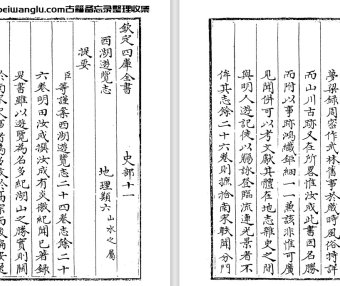 beiwanglu.com古籍备忘录整理收集
欽定四庫全書
西湖遊覽志
史部十一
提要
地理類六山水之屬
臣等謹案西湖遊覽志二十四卷志餘二十
六卷明田汝成撰汝成有炎徼紀聞已著錄
是書雖以遊覽為名多紀湖山之勝實則關
夢粱錄周密作武林舊事於歲時風俗特詳
而山川古跡又在所畧惟汝成此書因名勝
而附以事跡鴻纖鉅細一一兼該非惟可廣
見聞併可以考文獻其體在地志雜史之間
與明人遊記徒以觴詠登臨流連光景者不
侔其志餘二十六卷則摭拾南宋軼聞分門